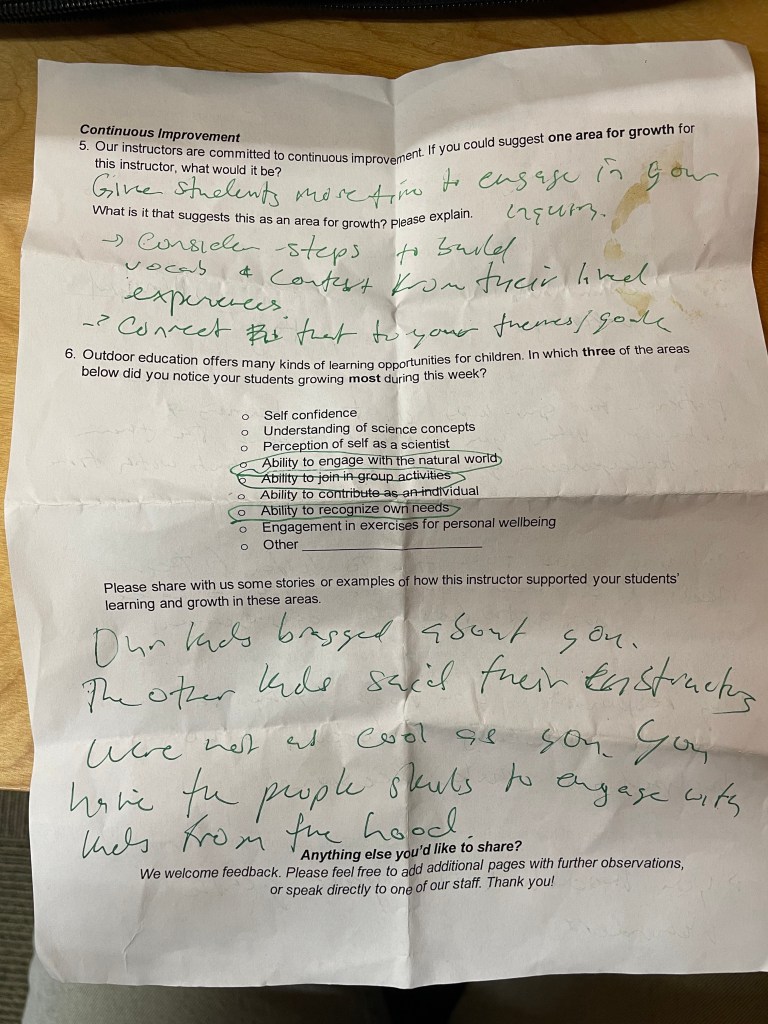 Continuous Improvement
5. Our instructors are committed to continuous improvement. If you could suggest one area for growth for
this instructor, what would it be?
Give students more time to engage in your
What is it that suggests this as an area for growth? Please explain. inquiry.
→ Consider steps to build
vocab & context from their lived
experiences.
→ Connect that to your themes/goals
6. Outdoor education offers many kinds of learning opportunities for children. In which three of the areas
below did you notice your students growing most during this week?
o Self confidence
o Understanding of science concepts
o Perception of self as a scientist
o Ability to engage with the natural world
o Ability to join in group activities
o Ability to contribute as an individual
o Ability to recognize own needs
o Engagement in exercises for personal wellbeing
o Other ____________________
Please share with us some stories or examples of how this instructor supported your students'
learning and growth in these areas.
Our kids bragged about you.
The other kids said their instructors
were not as cool as you. You
have the people skills to engage with
kids from the hood.
Anything else you'd like to share?
We welcome feedback. Please feel free to add additional pages with further observations,
or speak directly to one of our staff. Thank you!